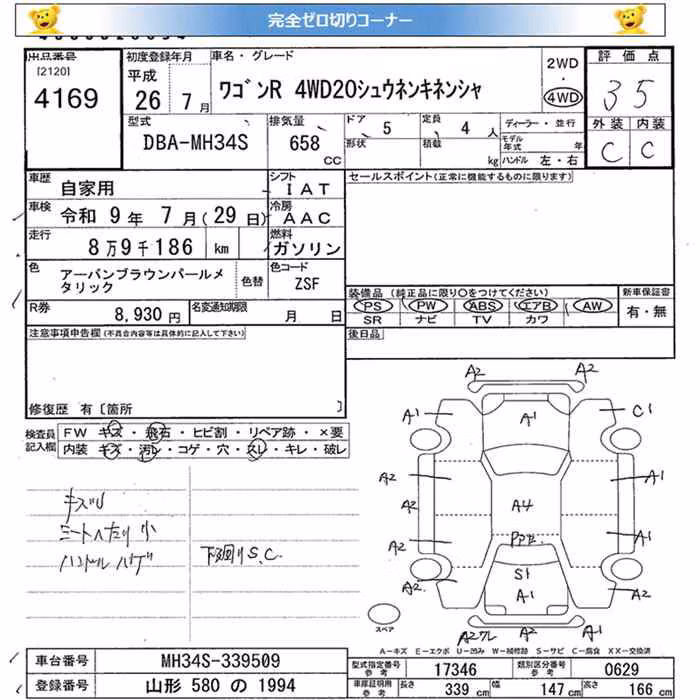 完全ゼロ切りコーナー
出品番号
[2120]
4169
初度登録年月
平成
26 年 7 月
車名・グレード
ワゴンR 4WD20シュウネンキネンシャ
2WD
・
4WD
評価点
3.5
外装 内装
C C
型式
DBA-MH34S
排気量
658 CC
ドア 5
形状
定員 4 人
積数 kg
ディーラー・並行
モデル年式 年
ハンドル 左・右
車歴 自家用
シフト IAT
車検 令和 9 年 7 月 (29 日)
冷房 AAC
走行 8万9千186 km
燃料 ガソリン
色 アーバンブラウンパールメタリック
色替
色コード ZSF
R券 8,930 円
名変通知期限 月 日
注意事項申告欄(不具合内容等は具体的に記入して下さい)
修復歴 有〔箇所 〕
セールスポイント(正常に機能するものに限ります)
装備品(純正品に限り○をつけてください)
PS PW ABS エアB AW
SR ナビ TV カワ
新車保証書
有・無
後日品
検査員記入欄
FW キズ・飛石・ヒビ割・リペア跡・×要
内装 キズ・汚レ・コゲ・穴・スレ・キレ・破レ
キズ小
シートヘタリ 小
ハンドル ハゲ
下廻り S、C
A2 A2
A1 A1 C1
A2 A1
A2 A4
A2 PPE A1
A2 S1 A2
A1
A2ワレ A2 A1
スペア
A－キズ E－エクボ U－凹み W－補修跡 S－サビ C－腐食 XX－交換済
車台番号 MH34S-339509
登録番号 山形 580 の 1994
型式指定番号 参考 17346
類別区分番号 参考 0629
車庫証明用 参考 長さ 339 cm 幅 147 cm 高さ 166 cm